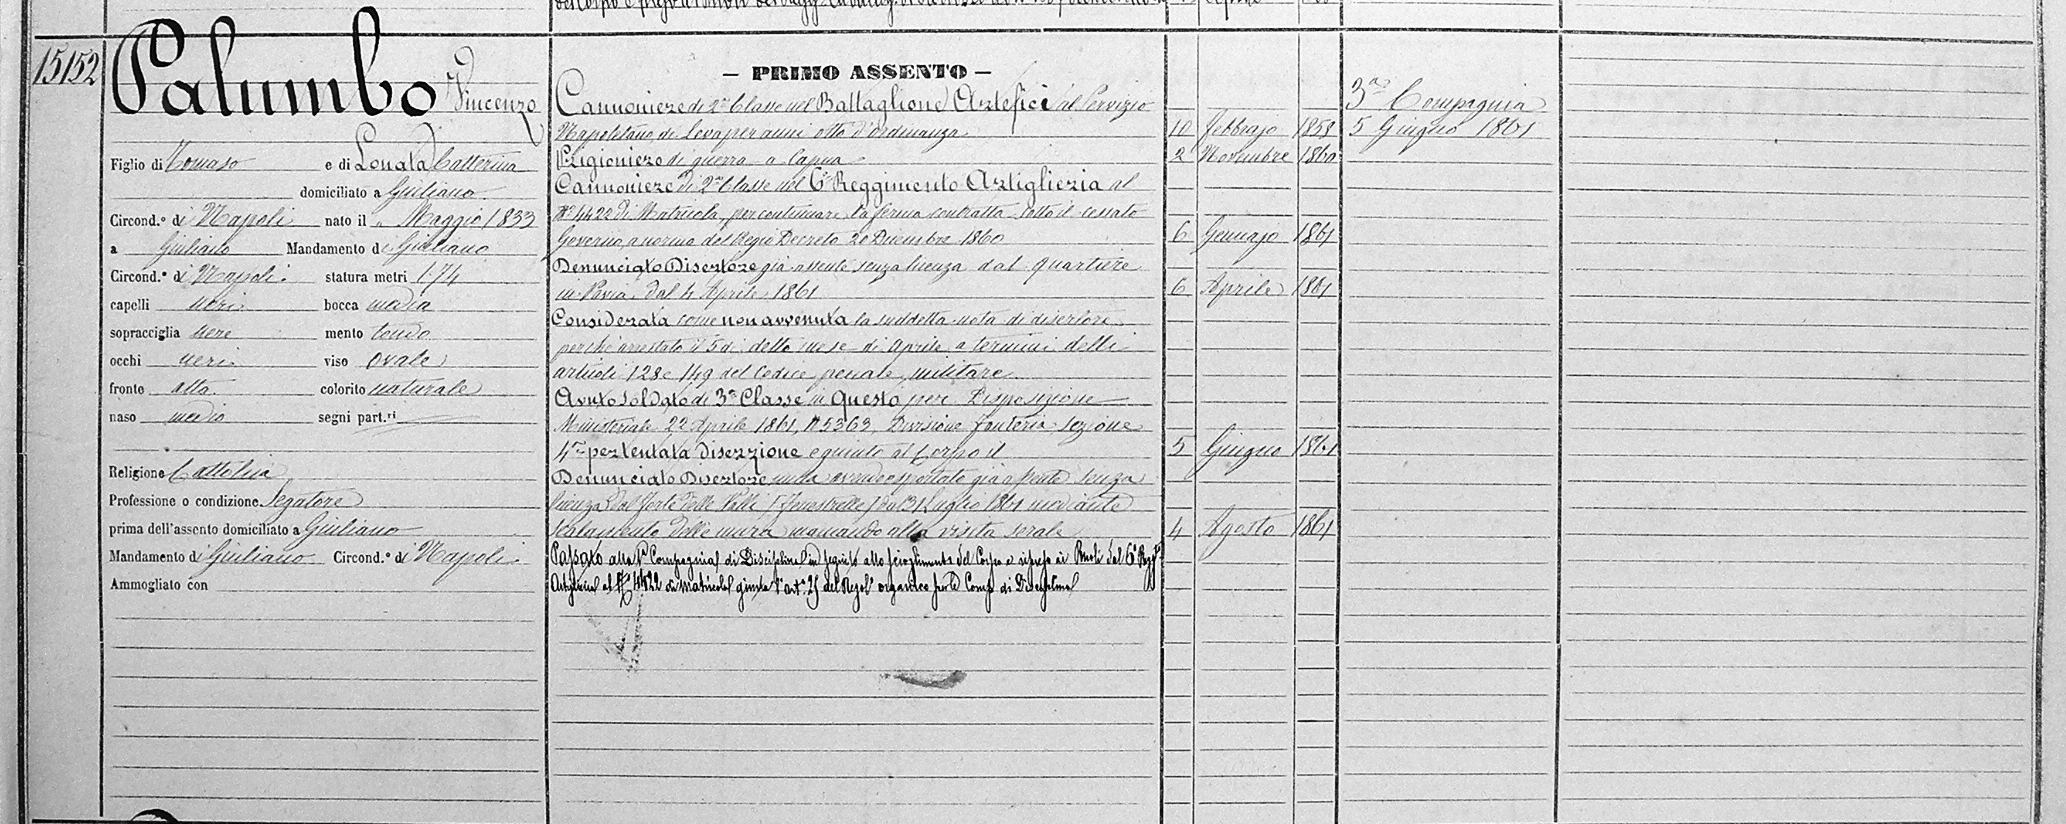 15152
Palumbo Vincenzo
Figlio di Tomaso e di Lonata Catterina
domiciliato a Giuliano
Circond.º di Napoli nato il Maggio 1833
a Giuliano Mandamento di Giuliano
Circond.º di Napoli statura metri 1.74
capelli neri bocca media
sopracciglia nere mento tondo
occhi neri viso ovale
fronte alta colorito naturale
naso medio segni part.ri
Religione Cattolica
Professione o condizione Segatore
prima dell'assento domiciliato a Giuliano
Mandamento di Giuliano Circond.º di Napoli
Ammogliato con
— PRIMO ASSENTO —
Cannoniere di 2ª Classe nel Battaglione Artefici al Servizio
Napolitano di Leva per anni otto d'ordinanza 10 Febbrajo 1858
Prigioniero di guerra a Capua 2 Novembre 1860
Cannoniere di 2ª Classe nel 6º Reggimento Artiglieria al
Nº 4422 di Matricola, per continuare la ferma contratta sotto il cessato
Governo, a norma del Regio Decreto 20 Dicembre 1860 6 Gennajo 1861
Denunciato Disertore già assente senza licenza dal quartiere
in Pavia dal 4 Aprile 1861 6 Aprile 1861
Considerata come non avvenuta la suddetta nota di disertore
perchè arrestato il 5 di detto mese di Aprile a termini delli
articoli 128 e 149 del Codice penale militare
Avuto soldato di 3ª Classe in Questo per Disposizione
Ministeriale 22 Aprile 1861, Nº 5363, Divisione fanteria sezione
4ª per tentata diserzione e giunto al Corpo il 5 Giugno 1861
Denunciato Disertore già assente senza
licenza dal Forte delle Valli (Fenestrelle) dal 31 Luglio 1861 mediante
scalamento delle mura mancando alla visita serale 4 Agosto 1861
Passato alla 1ª Compagnia di Disciplina in seguito allo scioglimento del Corpo e ripreso ai Ruoli dal 6º Regg.to
Artiglieria al Nº 4422 di matricola giusta l'art.º 25 del Regol.º organico per le Comp. di Disciplina
3ª Compagnia
5 Giugno 1861